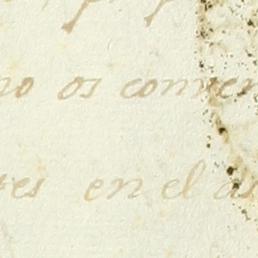 no os conven
res en el as